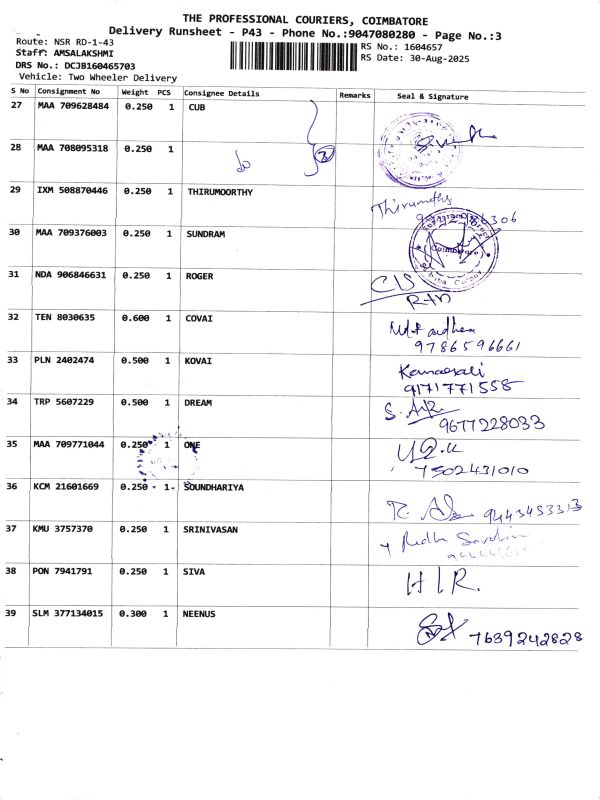 THE PROFESSIONAL COURIERS, COIMBATORE
Delivery Runsheet - P43 - Phone No.:9047080280 - Page No.:3
Route: NSR RD-1-43
Staff: AMSALAKSHMI
DRS No.: DCJB160465703
Vehicle: Two Wheeler Delivery
RS No.: 1604657
RS Date: 30-Aug-2025
S No Consignment No Weight PCS Consignee Details Remarks Seal & Signature
27 MAA 709628484 0.250 1 CUB
28 MAA 708095318 0.250 1
29 IXM 508870446 0.250 1 THIRUMOORTHY
30 MAA 709376003 0.250 1 SUNDRAM
Coimbatore
31 NDA 906846631 0.250 1 ROGER
32 TEN 8030635 0.600 1 COVAI
9786596661
33 PLN 2402474 0.500 1 KOVAI
9171771558
34 TRP 5607229 0.500 1 DREAM
9677228033
35 MAA 709771044 0.250 1 ONE
7502431010
36 KCM 21601669 0.250 1 SOUNDHARIYA
9443453313
37 KMU 3757370 0.250 1 SRINIVASAN
38 PON 7941791 0.250 1 SIVA
HIR.
39 SLM 377134015 0.300 1 NEENUS
7639242828